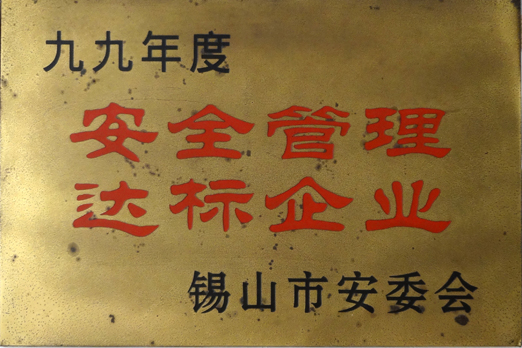 九九年度
安全管理
达标企业
锡山市安委会